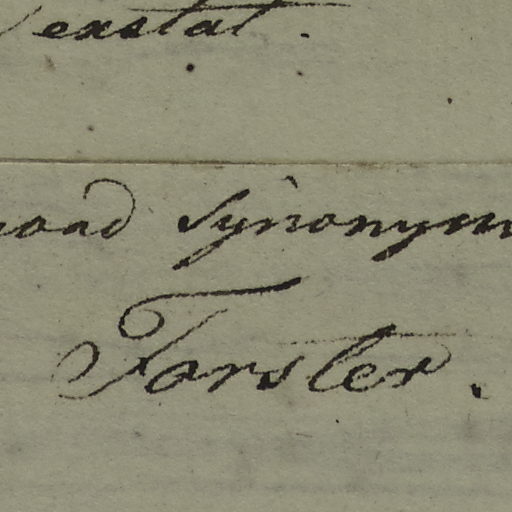 exstat.
quoad synonym
Forster.